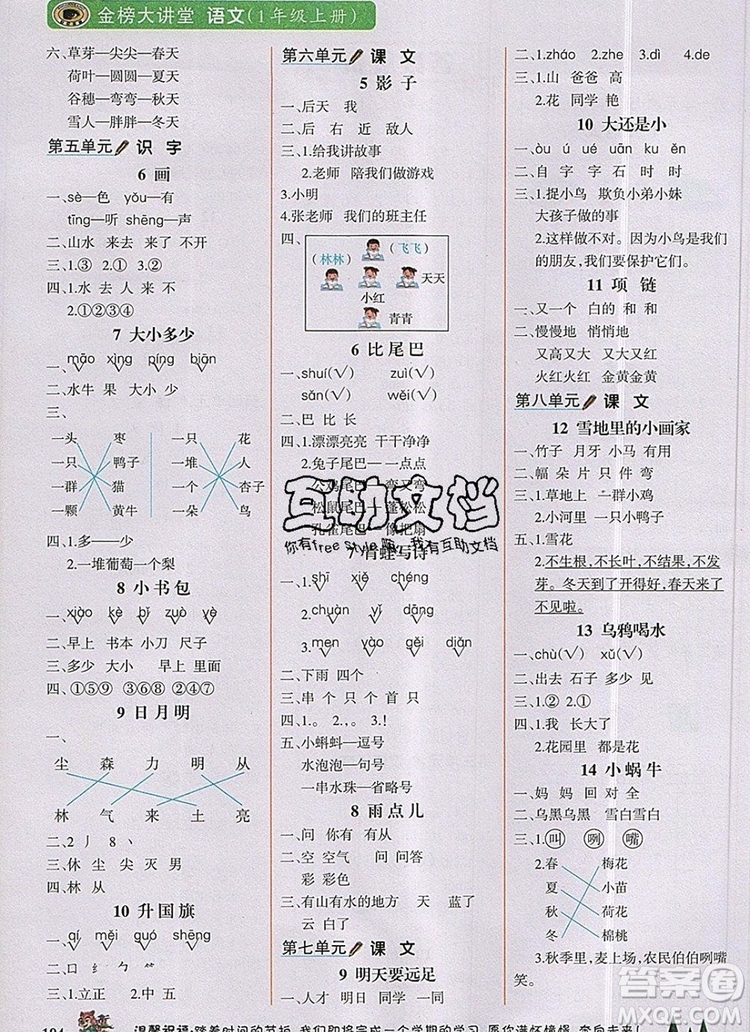 金榜大讲堂 语文(1年级上册)
六、草芽—尖尖—春天
荷叶—圆圆—夏天
谷穗—弯弯—秋天
雪人—胖胖—冬天
第五单元 识字
6 画
一、sè—色 yǒu—有
tīng—听 shēng—声
二、山水 来去 来了 不开
三、1.③ 2.① 3.②
四、1.水 去 人 来 不
2.①②③④
7 大小多少
一、māo xìng píng biān
二、水牛 果 大小 多少
三、
一头 枣 一只 花
一只 鸭子 一堆 人
一群 猫 一个 杏子
一颗 黄牛 一群 鸟
四、1.多—少
2.一堆葡萄 一个梨
8 小书包
一、xiào kè bǐ zuò yè
二、早上 书本 小刀 尺子
三、多少 大小 早上 里面
四、①⑤⑨ ②③④⑥⑦⑧
9 日月明
一、
尘 森 力 明 从
林 气 来 土 亮
二、2 丿 8 丶
三、休 尘 尖 灭 男
四、林 从
10 升国旗
一、qí měi guó shēng
三、1.立正 2.中 五
第六单元 课文
5 影子
一、后天 我
二、后 右 近 敌人
三、1.给我讲故事
2.老师 陪我们做游戏
3.小明
4.张老师 我们的班主任
四、
(飞飞)
(林林) 天天
小红
青青
6 比尾巴
一、shuí(√) zuì(√)
sǎn(√) biǎn(√)
二、巴 比 长
四、1.漂漂亮亮 干干净净
2.兔子尾巴 一点点
公鸡尾巴 弯又弯
松鼠尾巴 蓬松松
孔雀尾巴 像把扇
7 青蛙写诗
一、1.shī xiě chéng
2.chuàn yǐ
3.men yào gěi diǎn
二、下雨 四个
三、串 个 只 片 个
四、1.。 2.，。 3.！
五、小蝌蚪—逗号
水泡泡—句号
一串水珠—省略号
8 雨点儿
一、问 你有 有没有
二、空 空气 问 问答
彩 彩色
三、有山有水的地方 天 蓝了
云 白了
第七单元 课文
9 明天要远足
二、1.zháo 2.zhe 3.dì 4.de
三、1.山 爸爸 高
2.花 同学 艳
10 大还是小
一、òu ú uè uān ku ěn
二、自 字 字 石 时 时
三、1.捉小鸟 欺负小弟小妹
大孩子做的事
2.这样做不对。因为小鸟是我们
的朋友,我们要保护它。
11 项链
一、又一个 白的 和 和
二、慢慢地 悄悄地
又高又大 又大又红
火红火红 金黄金黄
第八单元 课文
12 雪地里的小画家
一、竹子 月牙 小马 有用
二、幅 朵 片 只 件 弯
三、1.草地上 一群小鸡
2.小河里 一只小鸭子
五、1.雪花
2.不生根,不长叶,不结果也不发
芽。冬天到了开得好,春天来了
不见啦。
13 乌鸦喝水
一、chù(√) xǔ(√)
二、出去 石子 多少 见面
三、1.② 2.①
四、1.我 长大了
2.花园里 都是花
14 小蜗牛
一、妈 妈 回 对 全
二、乌黑乌黑 雪白雪白
三、1.叫 咧 嘴
2.春 梅花
夏 小苗
秋 荷花
冬 棉桃
3.秋季,麦上麦,农民伯伯咧嘴
笑。
互助文档
答案圈
MXQE.COM